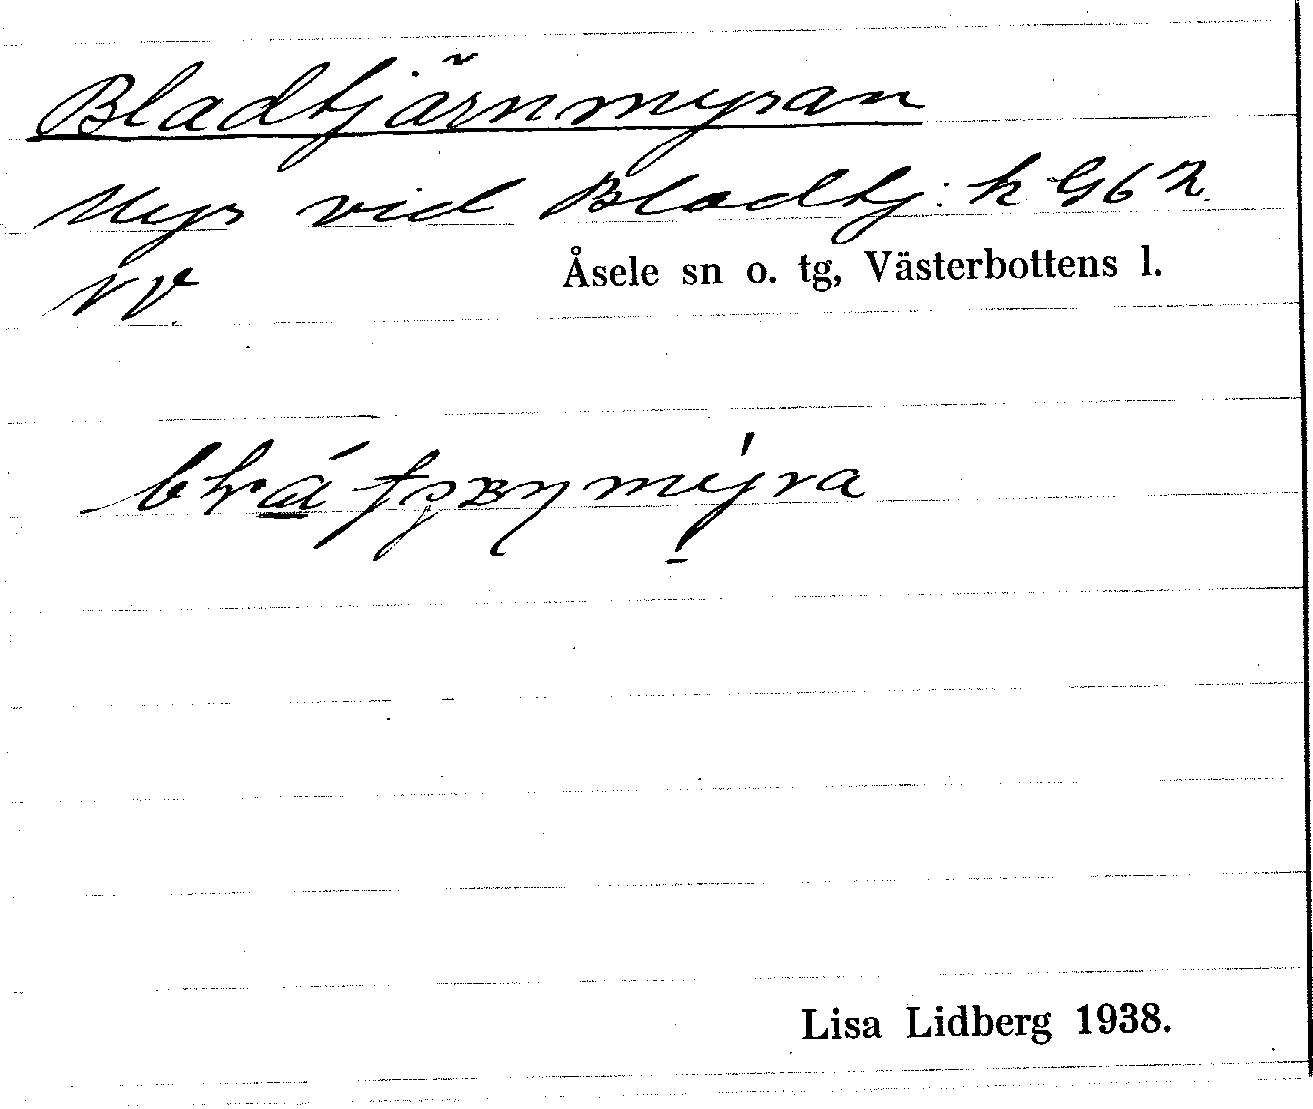 Bladtjärnmyran
Myr vid Bladtj: k G6 n.
NV.
Åsele sn o. tg, Västerbottens l.
Lisa Lidberg 1938.